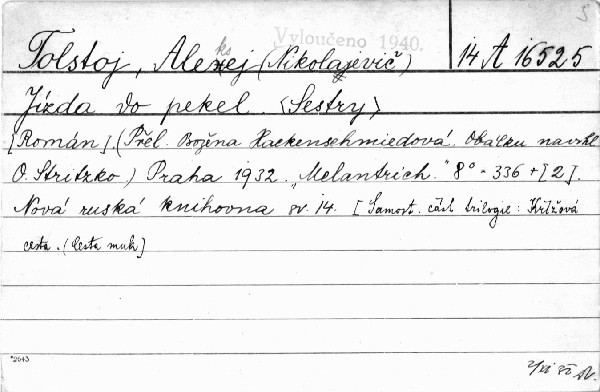 Vyloučeno 1940.
Tolstoj, Aleksej (Nikolajevič) 14 A 16525
Jízda do pekel. <Sestry>
[Román]. (Přel. Božena Hackenschmiedová. Obálku navrhl
O. Stritzko) Praha 1932. "Melantrich." 8° - 336 + [2].
Nová ruská knihovna sv. 14. [Samost. část trilogie: Křížová
cesta. (Cesta muk)]
*2643